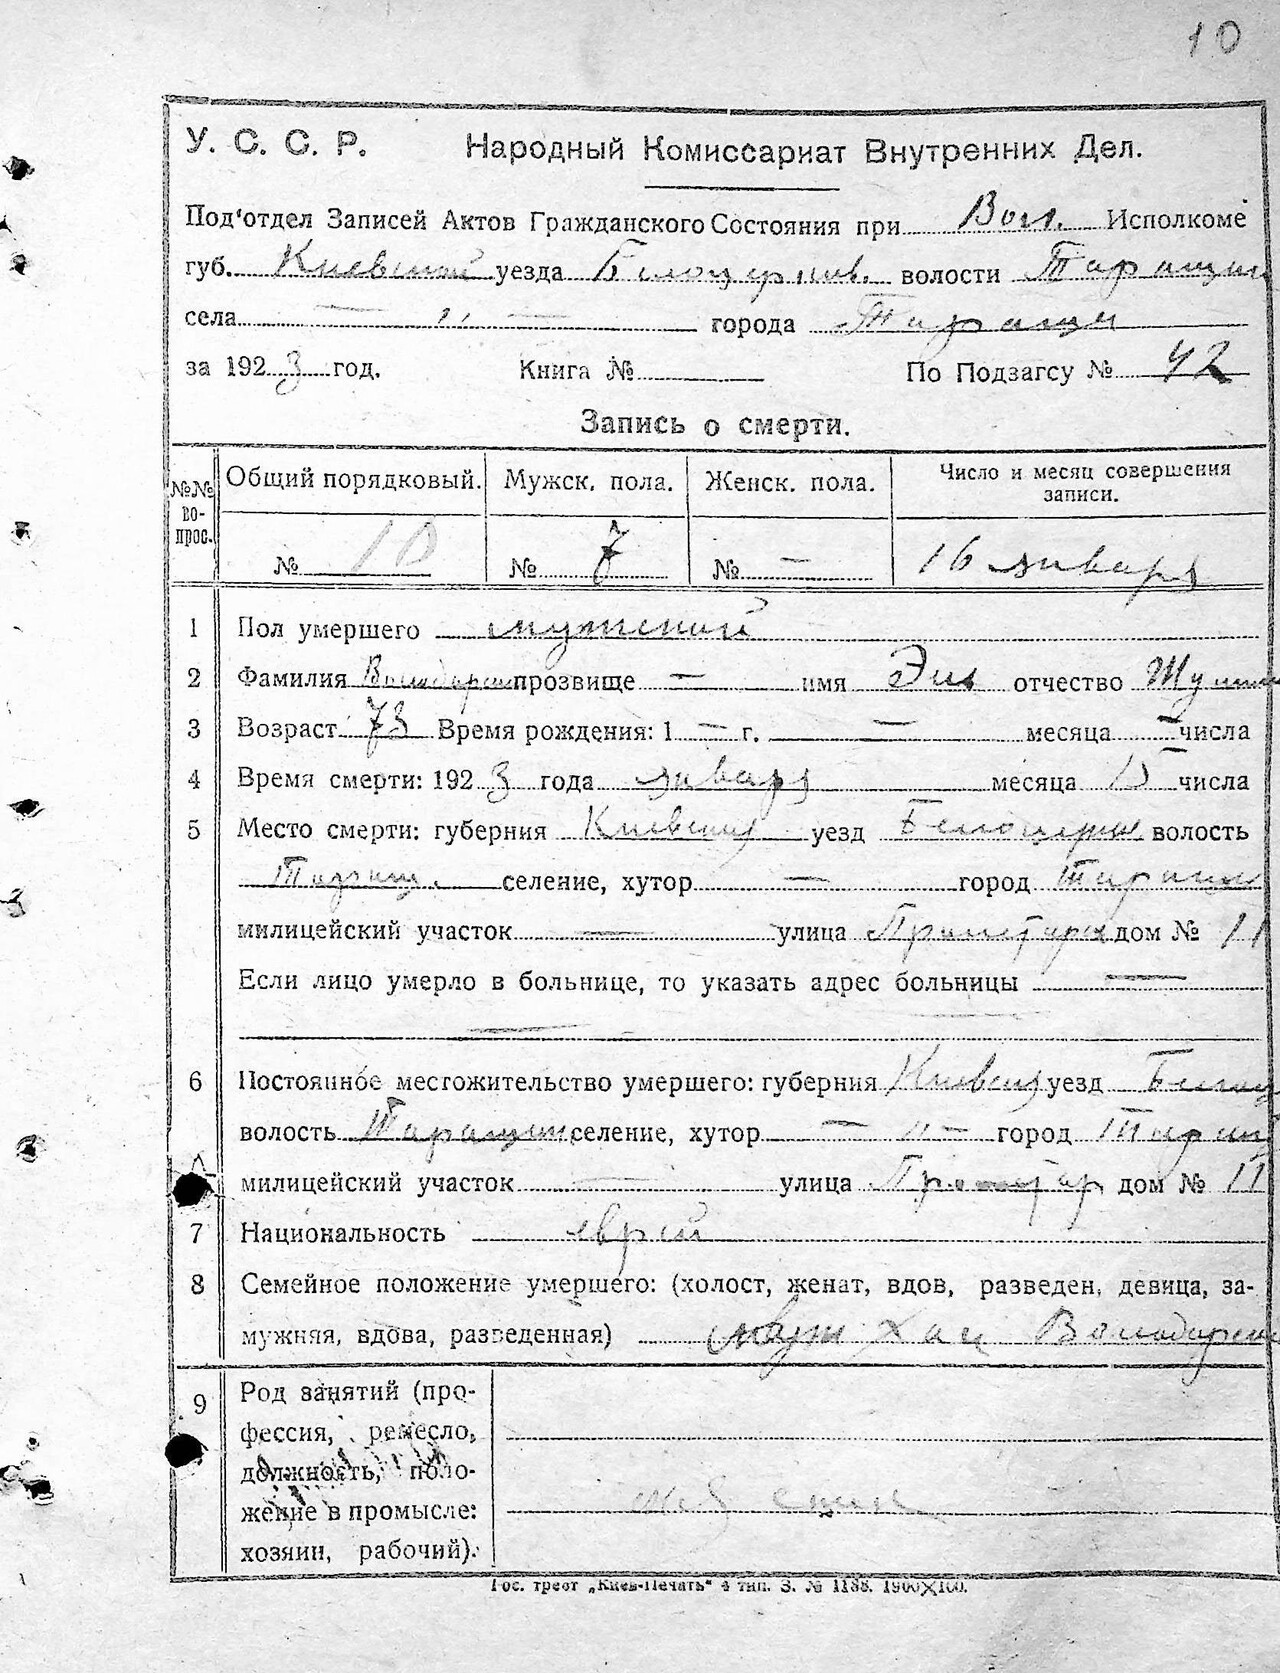 10
У. С. С. Р. Народный Комиссариат Внутренних Дел.
Под'отдел Записей Актов Гражданского Состояния при Вол. Исполкоме
губ. Киевской уезда Белоцерков. волости Таращан
села — „ — города Таращи
за 1923 год. Книга № По Подзагсу № 42
Запись о смерти.
№№ во-прос. Общий порядковый. Мужск. пола. Женск. пола. Число и месяц совершения записи.
№ 10 № 7 № — 16 января
1 Пол умершего мужской
2 Фамилия прозвище — имя отчество
3 Возраст 73 Время рождения: 1 — г. — месяца — числа
4 Время смерти: 1923 года января месяца 15 числа
5 Место смерти: губерния Киевская уезд Белоцерков волость
Таращ. селение, хутор — город Тараща
милицейский участок — улица дом № 11
Если лицо умерло в больнице, то указать адрес больницы —
—
6 Постоянное местожительство умершего: губерния Киевск уезд Белоц
волость Таращан селение, хутор — „ — город Таращ
милицейский участок — улица дом № 11
7 Национальность еврей
8 Семейное положение умершего: (холост, женат, вдов, разведен, девица, за-
мужняя, вдова, разведенная) муж
9 Род занятий (про-
фессия, ремесло,
должность, поло-
жение в промысле:
хозяин, рабочий).
Гос. трест „Киев-Печать“ 4 тип. З. № 1188. 1900×100.